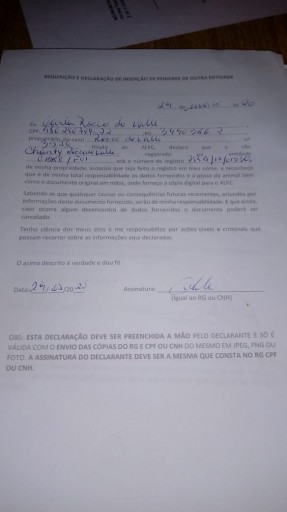 REQUISIÇÃO E DECLARAÇÃO DE INSERÇÃO DE PEDIGREE DE OUTRA ENTIDADE
29 de de 20
Eu Rocco do Valle
CPF RG
proprietário do canil Rocco do Valle
filiado ao ALKC, declaro que o cão
registrado na entidade
sob o número de registro
de minha propriedade, autorizo que seja feito o registro em meu nome, e reconheço
que é de minha total responsabilidade os dados fornecidos e a posse do animal bem
como o documento original em mãos, onde forneço a cópia digital para o ALKC.
Sabendo se que qualquer causas ou consequências futuras recorrentes, oriundas por
informações deste documento fornecido, serão de minha responsabilidade. E que ainda,
caso ocorra algum desencontro de dados fornecidos o documento poderá ser
cancelado.
Tenho ciência dos meus atos e me responsabilizo por ações cíveis e criminais que
possam recorrer sobre as informações aqui declaradas.
O acima descrito é verdade e dou fé.
Data: Assinatura:
(Igual ao RG ou CNH)
OBS: ESTA DECLARAÇÃO DEVE SER PREENCHIDA A MÃO PELO DECLARANTE E SÓ É
VÁLIDA COM O ENVIO DAS CÓPIAS DO RG E CPF OU CNH DO MESMO EM JPEG, PNG OU
FOTO. A ASSINATURA DO DECLARANTE DEVE SER A MESMA QUE CONSTA NO RG CPF
OU CNH.